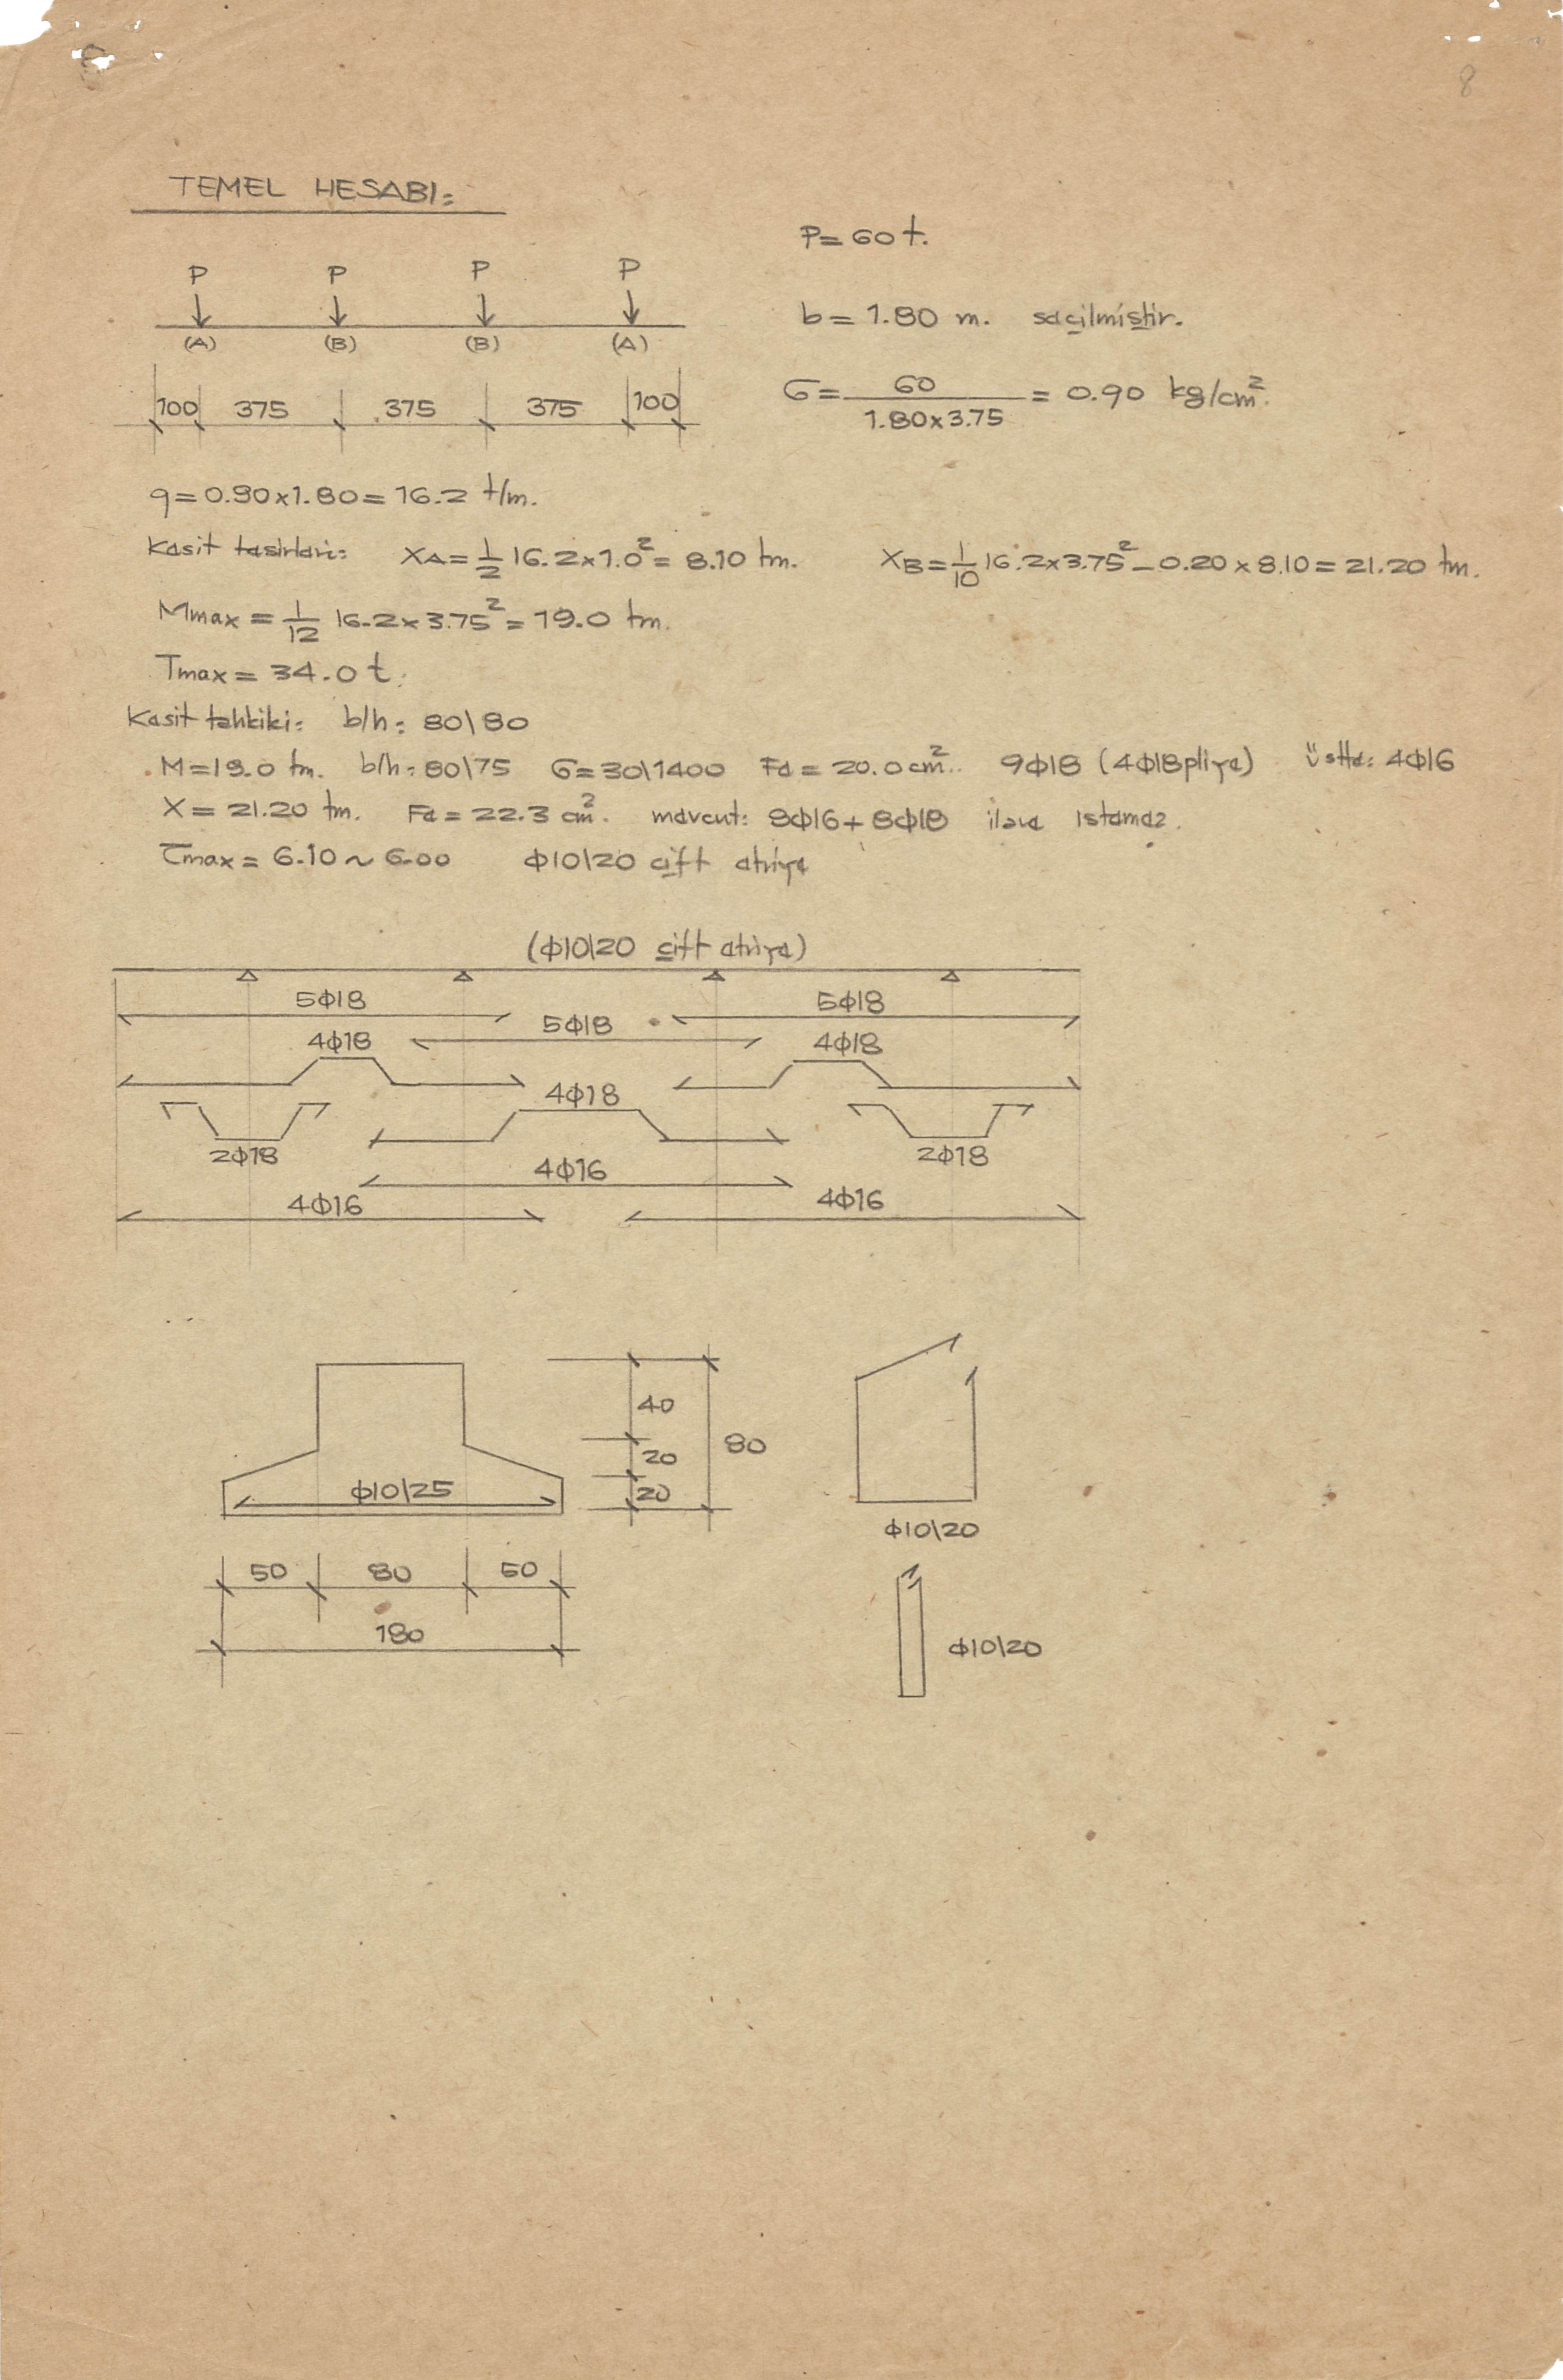 8
TEMEL HESABI:
P=60t.
P P P P
(A) (B) (B) (A)
b=1.80 m. seçilmiştir.
100 375 375 375 100
G= 60 / 1.80x3.75 = 0.90 kg/cm²
q=0.90x1.80=16.2 t/m.
Kesit tesirleri: XA= 1/2 16.2x1.0²= 8.10 tm. XB= 1/10 16.2x3.75²-0.20x8.10=21.20 tm.
Mmax = 1/12 16.2x3.75²=19.0 tm.
Tmax= 34.0 t.
Kesit tahkiki: b/h: 80\80
M=19.0 tm. b/h: 80\75 G=30\1400 Fe=20.0cm². 9Φ18 (4Φ18 pliye) üstte: 4Φ16
X= 21.20 tm. Fe=22.3 cm². mevcut: 8Φ16+8Φ18 ilave istemez.
τmax= 6.10~6.00 Φ10\20 çift etriye
(Φ10\20 çift etriye)
5Φ18 5Φ18
5Φ18
4Φ18 4Φ18
4Φ18
2Φ18 2Φ18
4Φ16
4Φ16 4Φ16
40
20 80
20
Φ10\25
Φ10\20
50 80 50
180
Φ10\20